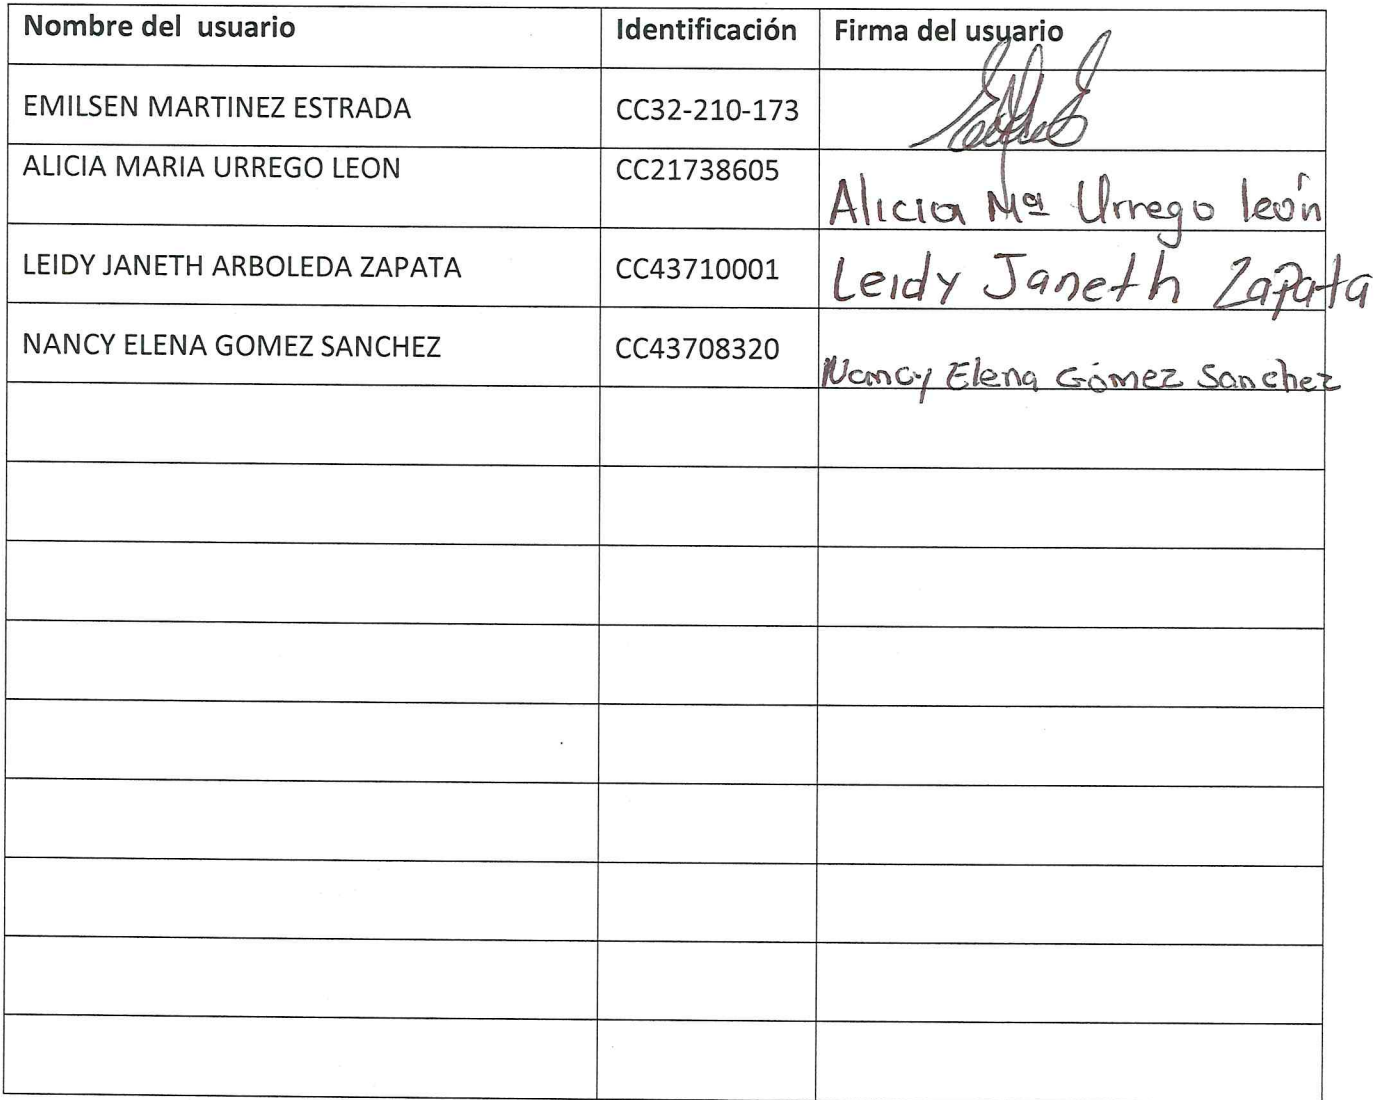 Nombre del usuario Identificación Firma del usuario
EMILSEN MARTINEZ ESTRADA CC32-210-173
ALICIA MARIA URREGO LEON CC21738605 Alicia Mª Urrego león
LEIDY JANETH ARBOLEDA ZAPATA CC43710001 Leidy Janeth Zapata
NANCY ELENA GOMEZ SANCHEZ CC43708320 Nancy Elena Gómez Sanchez